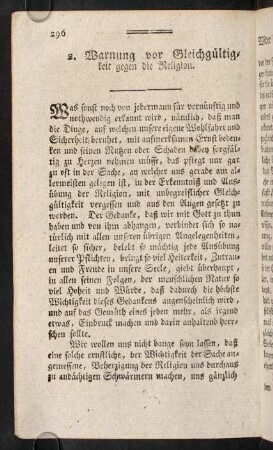 296
2. Warnung vor Gleichgültig-
keit gegen die Religion.
Was sonst noch von jedermann für vernünftig und
nothwendig erkannt wird, nämlich, daß man
die Dinge, auf welchen unsere eigene Wohlfahrt und
Sicherheit beruhet, mit aufmerksamen Ernst beden-
ken und seinen Nutzen oder Schaden sorgfäl-
tig zu Herzen nehmen müsse, das pflegt nur gar
zu oft in der Sache, an welcher uns gerade am
allermeisten gelegen ist, in der Erkenntniß und Aus-
übung der Religion, mit unbegreiflicher Gleich-
gültigkeit vergessen und aus den Augen gesetzt zu
werden. Der Gedanke, daß wir mit Gott zu thun
haben und von ihm abhangen, verbindet sich so na-
türlich mit allen unsern übrigen Angelegenheiten,
leitet so sicher, belebt so mächtig jede Ausübung
unserer Pflichten, bringt so viel Heiterkeit, Zutrau-
en und Freude in unsere Seele, giebt überhaupt,
in allen seinen Folgen, der menschlichen Natur so
viel Hoheit und Würde, daß dadurch die höchste
Wichtigkeit dieses Gedankens augenscheinlich wird,
und auf das Gemüth eines jeden mehr, als irgend
etwas, Eindruck machen und darin anhaltend herr-
schen sollte.
Wir wollen uns nicht bange seyn lassen, daß
eine solche ernstliche, der Wichtigkeit der Sache an-
gemessene, Beherzigung der Religion uns durchaus
zu andächtigen Schwärmern machen, uns gänzlich